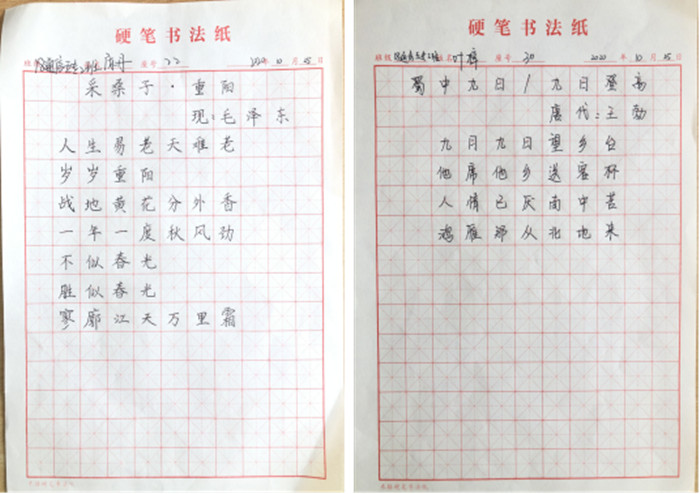 硬笔书法纸
座号 22 2020年10月25日
采桑子·重阳
现:毛泽东
人生易老天难老
岁岁重阳
战地黄花分外香
一年一度秋风劲
不似春光
胜似春光
寥廓江天万里霜
硬笔书法纸
班级 姓名 叶 座号 30 2020年10月25日
蜀中九日/九日登高
唐代:王勃
九月九日望乡台
他席他乡送客杯
人情已厌南中苦
鸿雁那从北地来